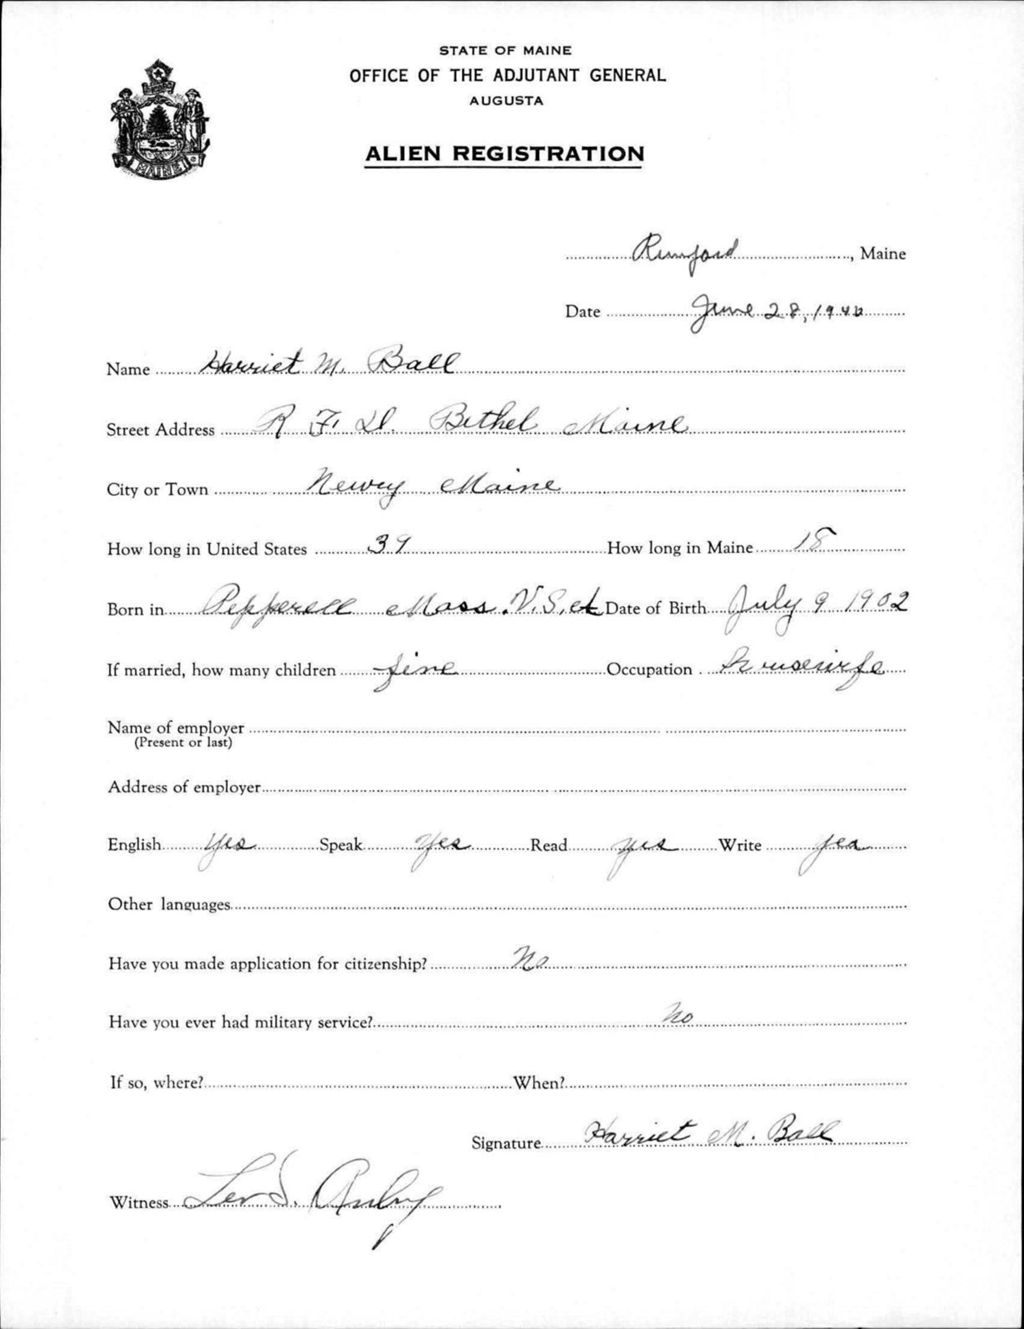 STATE OF MAINE
OFFICE OF THE ADJUTANT GENERAL
AUGUSTA
ALIEN REGISTRATION
MAINE
Rumford, Maine
Date June 28, 1940
Name Harriet M. Ball
Street Address R. F. D. Bethel Maine
City or Town Newry Maine
How long in United States 37 How long in Maine 18
Born in Pepperell Mass. U.S.A. Date of Birth July 9 1902
If married, how many children five Occupation housewife
Name of employer
(Present or last)
Address of employer
English Yes Speak Yes Read yes Write yes
Other languages
Have you made application for citizenship? No
Have you ever had military service? No
If so, where? When?
Signature Harriet M. Ball
Witness